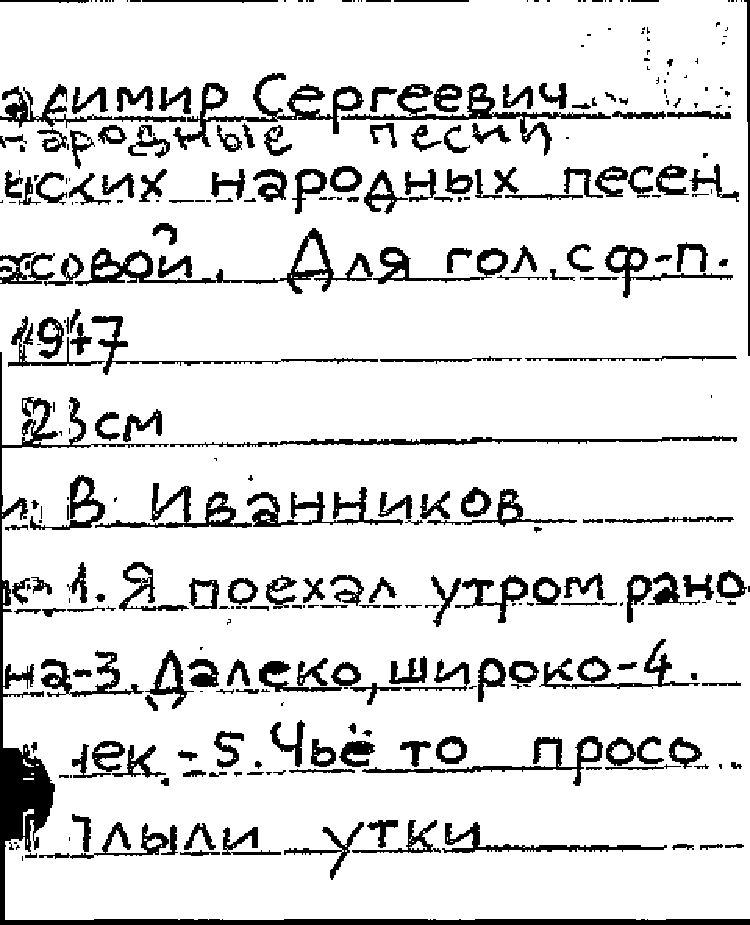 адимир Сергеевич
народные песни
ыских народных песен
асовой. Для гол. с ф-п.
1947
23 см
и: В. Иванников
1. Я поехал утром рано
на-3. Далеко, широко-4.
чек - 5. Чьё то просо
Плыли утки